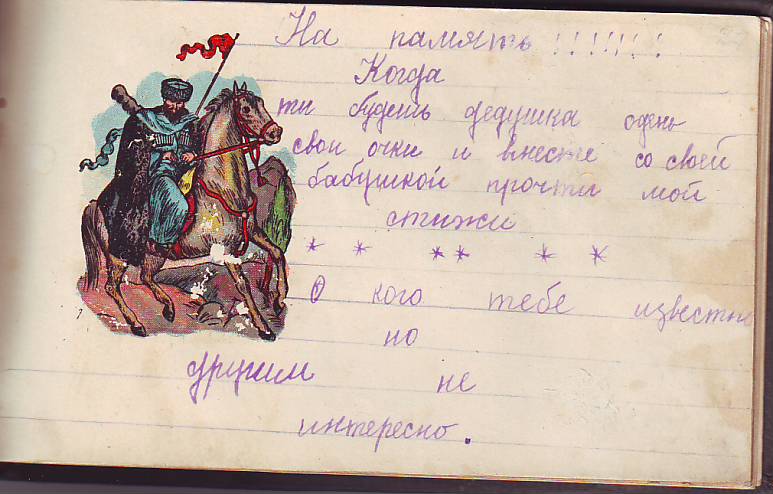 На память !!!!!!!
Когда
ты будешь дедушка одень
свои очки и вместе со своей
бабушкой прочти мой
стижи
* * ** * *
О кого тебе известно
но
другим не
интересно.